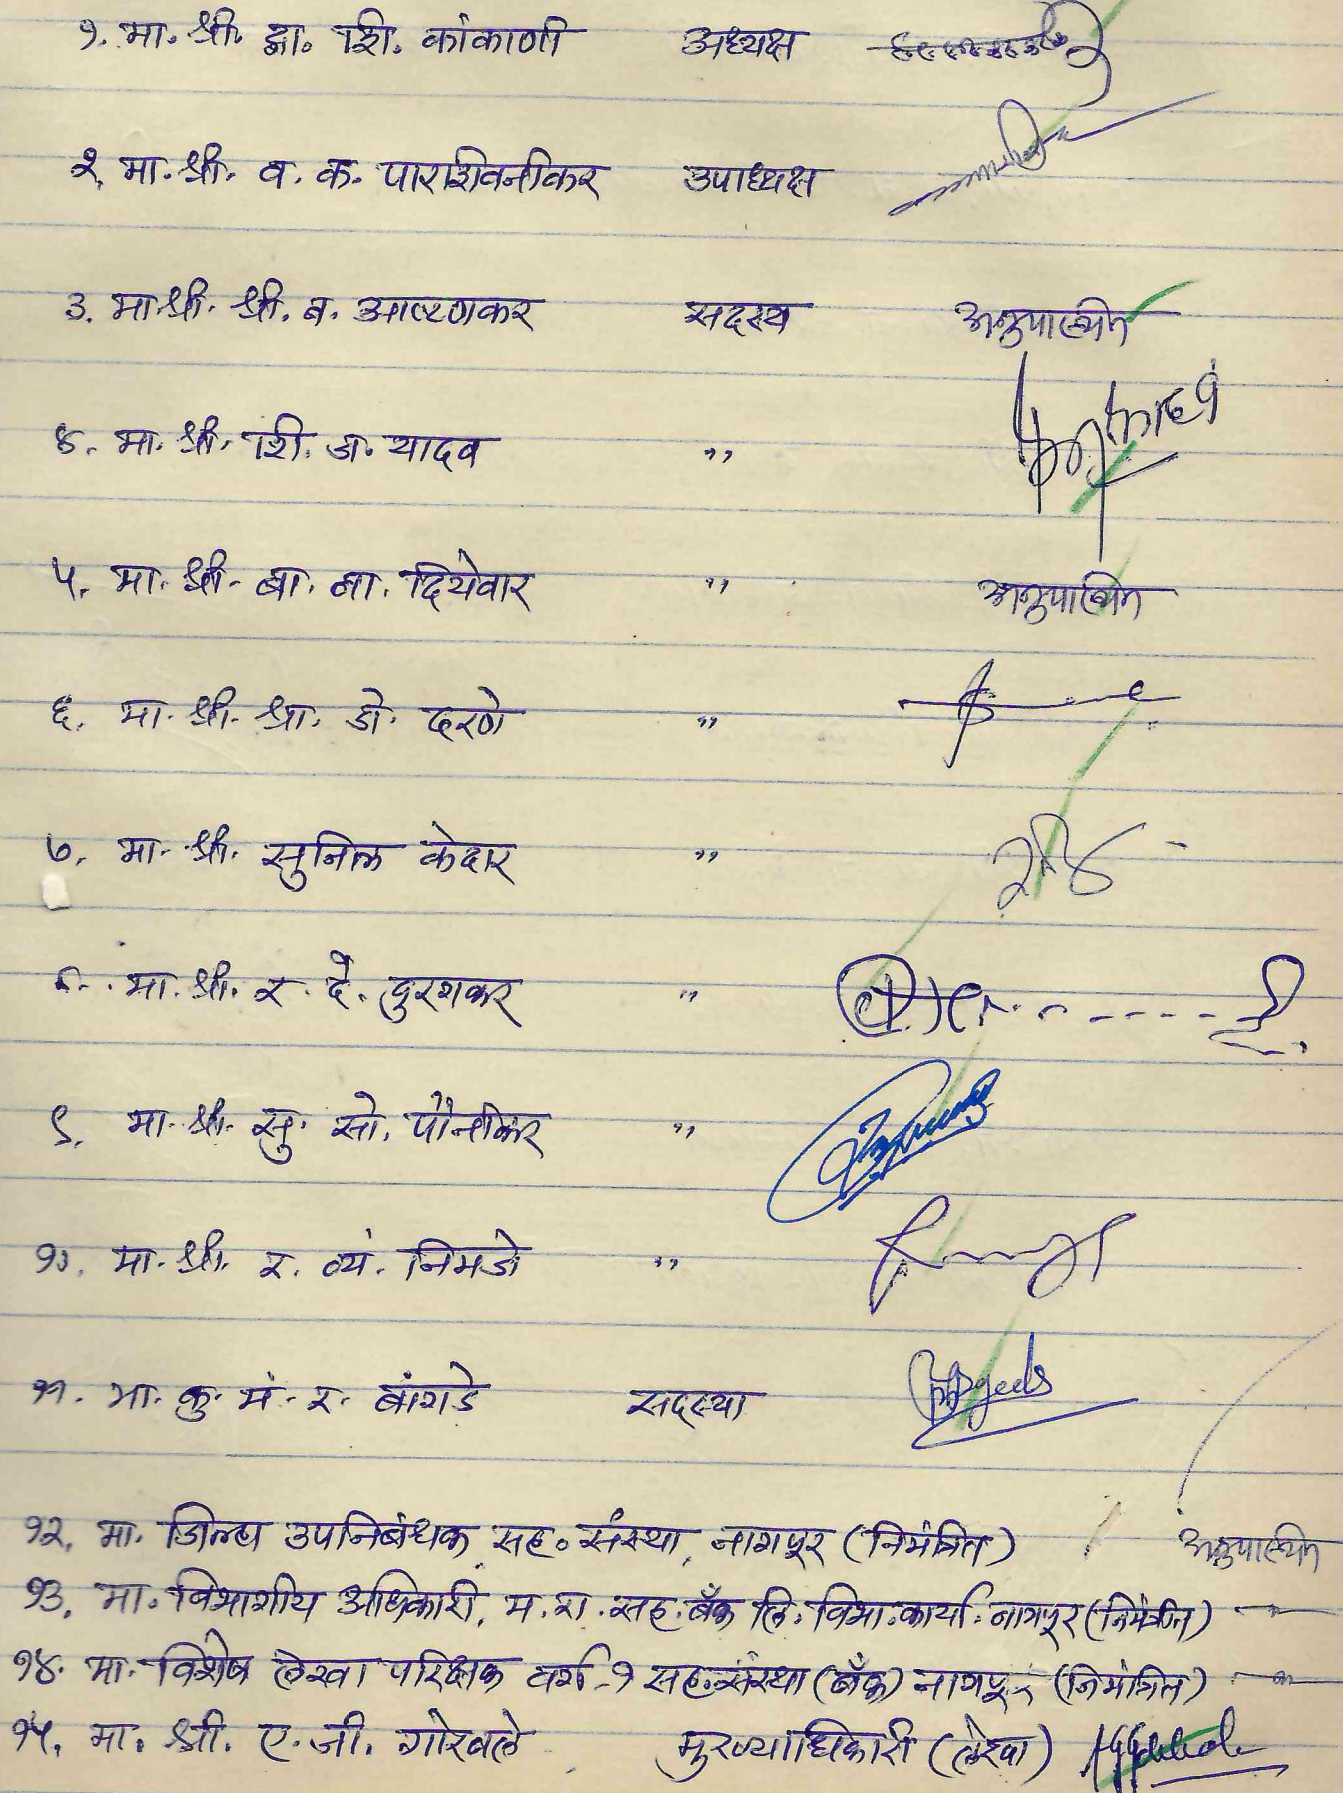 १. मा. श्री. द्वा. शि. काकाणी अध्यक्ष
२. मा. श्री. व. क. पाराशिवनीकर उपाध्यक्ष
३. मा. श्री. श्री. ब. आष्टणकर सदस्य अनुपास्थित
४. मा. श्री. शि. डा. यादव ,,
५. मा. श्री. बा. ना. दियेवार ,, अनुपास्थित
६. मा. श्री. श्रा. डो. दरणे ,,
७. मा. श्री. सुनिल केदार ,,
८. मा. श्री. र. दे. दुरुगकर ,,
९. मा. श्री. सु. सो. पौनीकर ,,
१०. मा. श्री. र. व्यं. निमजे ,,
११. मा. कु. मं. र. बांगडे सदस्या
१२. मा. जिल्हा उपनिबंधक, सह. संस्था, नागपूर (निमंत्रित) अनुपास्थित
१३. मा. विभागीय अधिकारी, म. रा. सह. बँक लि. विभा. कार्या. नागपूर (निमंत्रित) -"-
१४. मा. विशेष लेखा परिक्षक वर्ग-१ सह. संस्था (बँक) नागपूर (निमंत्रित) -"-
१५. मा. श्री. ए. जी. गोखले मुख्याधिकारी (लेखा)